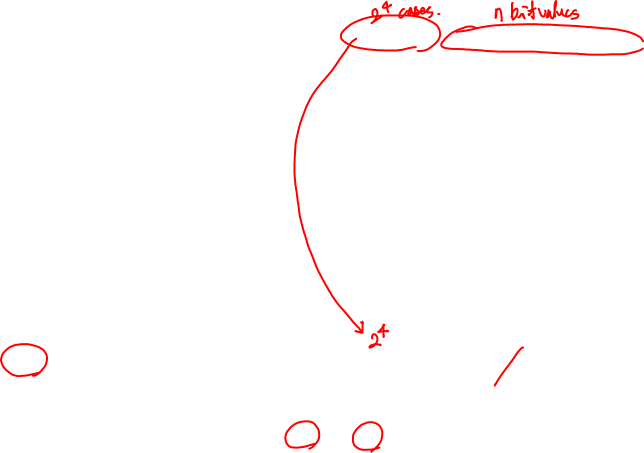 2⁴ cases.
n bit values
2⁴